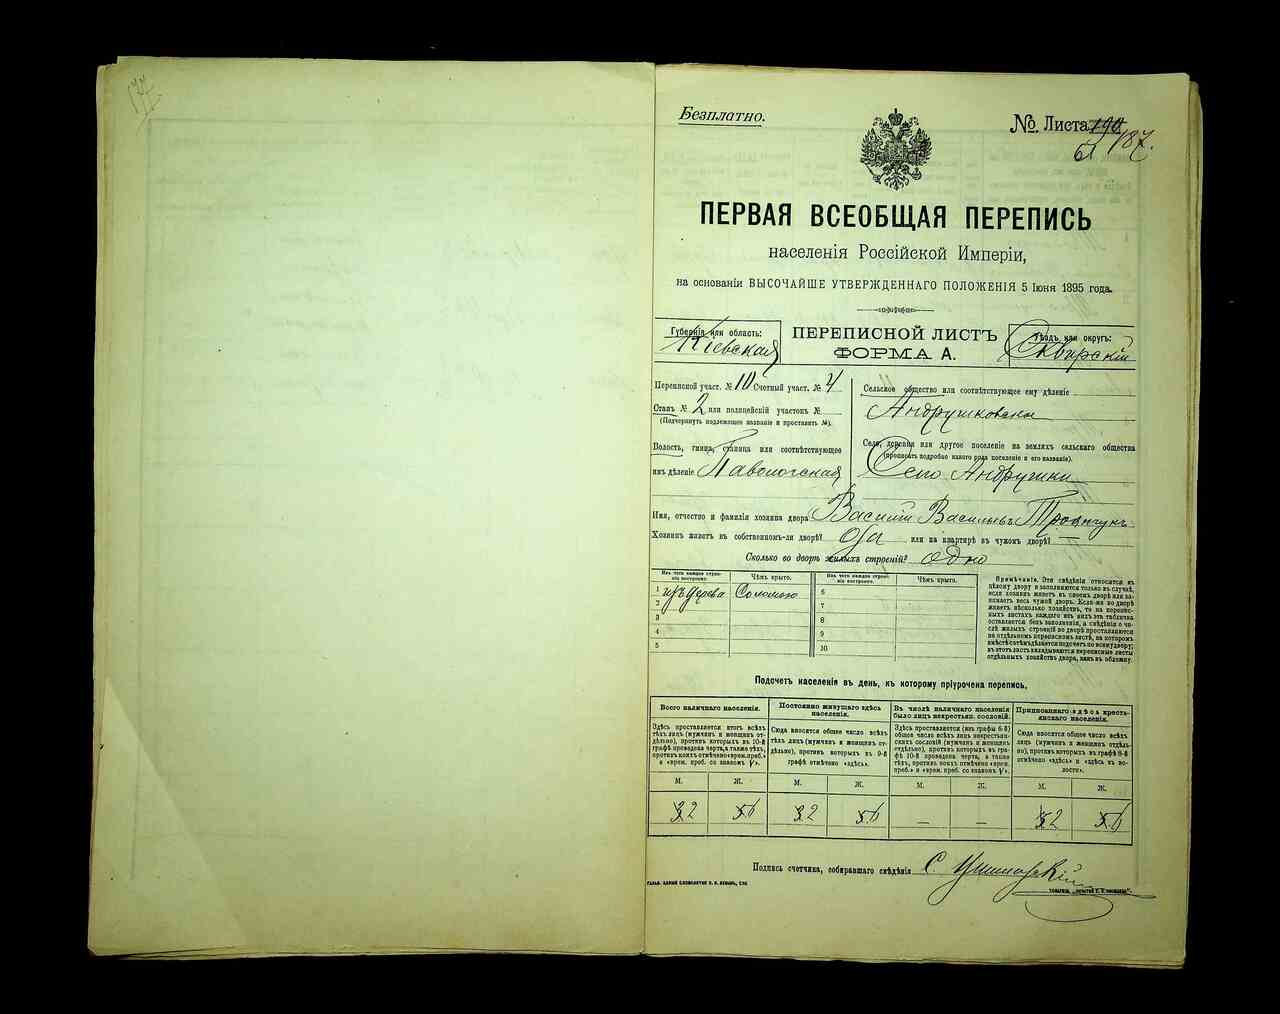 Безплатно.
№ Листа 187.
ПЕРВАЯ ВСЕОБЩАЯ ПЕРЕПИСЬ
населенія Россійской Имперіи,
на основаніи ВЫСОЧАЙШЕ УТВЕРЖДЕННАГО ПОЛОЖЕНІЯ 5 Іюня 1895 года.
Губернія или область:
Кіевская
ПЕРЕПИСНОЙ ЛИСТЪ
ФОРМА А.
Уѣздъ или округъ:
Сквирскій
Переписной участ. № 10 Счетный участ. № 4
Станъ № 2 или полицейскій участокъ №
(Подчеркнуть подлежащее названіе и проставить №).
Волость, гмина, станица или соотвѣтствующее
имъ дѣленіе Паволочская
Сельское общество или соотвѣтствующее ему дѣленіе
Село, деревня или другое поселеніе на земляхъ сельскаго общества
(прописать подробно какого рода поселеніе и его названіе).
Село Андрушки
Имя, отчество и фамилія хозяина двора Василій Васильевъ
Хозяинъ живетъ въ собственномъ-ли дворѣ? или на квартирѣ въ чужомъ дворѣ? —
Сколько во дворѣ жилыхъ строеній? одно
Изъ чего каждое строеніе построено.
Чѣмъ крыто.
Изъ чего каждое строеніе построено.
Чѣмъ крыто.
1 изъ дерева Соломою
2
3
4
5
6
7
8
9
10
Примѣчаніе. Эти свѣдѣнія относятся къ
цѣлому двору и заполняются только въ случаѣ,
если хозяинъ живетъ въ своемъ дворѣ или за-
нимаетъ весь чужой дворъ. Если-же во дворѣ
живетъ нѣсколько хозяйствъ, то на перепис-
ныхъ листахъ каждаго изъ нихъ эта табличка
оставляется безъ заполненія, а свѣдѣнія о чи-
слѣ жилыхъ строеній во дворѣ проставляются
на отдѣльномъ переписномъ листѣ, на которомъ
вмѣстѣ съ тѣмъ дѣлается подсчетъ по всему двору;
въ этотъ листъ вкладываются переписные листы
отдѣльныхъ хозяйствъ двора, какъ въ обложку.
Подсчетъ населенія въ день, къ которому пріурочена перепись.
Всего наличнаго населенія.
Здѣсь проставляется итогъ всѣхъ
тѣхъ лицъ (мужчинъ и женщинъ от-
дѣльно), противъ которыхъ въ 10-й
графѣ проведена черта, а также тѣхъ,
противъ коихъ отмѣчено «врем. преб.»
и «врем. преб. со знакомъ V».
Постоянно живущаго здѣсь
населенія.
Сюда вносится общее число всѣхъ
тѣхъ лицъ (мужчинъ и женщинъ от-
дѣльно), противъ которыхъ въ 9-й
графѣ отмѣчено «здѣсь».
Въ числѣ наличнаго населенія
было лицъ некрестьян. сословій.
Здѣсь проставляется (изъ графы 6-й)
общее число всѣхъ лицъ некрестьян-
скихъ сословій (мужчинъ и женщинъ
отдѣльно), противъ которыхъ въ гра-
фѣ 10-й проведена черта, а также
тѣхъ, противъ коихъ отмѣчено «врем.
преб.» и «врем. преб. со знакомъ V».
Приписаннаго здѣсь кресть-
янскаго населенія.
Сюда вносится общее число всѣхъ
лицъ (мужчинъ и женщинъ отдѣль-
но), противъ которыхъ въ графѣ 8-й
отмѣчено «здѣсь» и «здѣсь въ во-
лости».
М. Ж. М. Ж. М. Ж. М. Ж.
2 6 2 6 — — 2 6
Подпись счетчика, собиравшаго свѣдѣнія С.